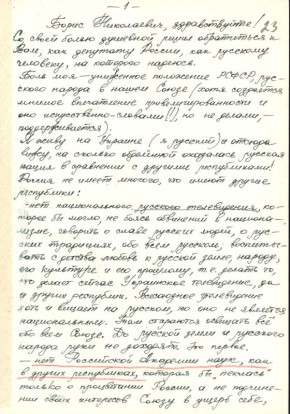 - 1 -
Борис Николаевич, здравствуйте!
Со своей болью душевной решил обратиться к
Вам, как депутату России, как русскому
человеку, на которого надеюсь.
Боль моя - униженное положение РСФСР, рус-
ского народа в нашем Союзе (хотя создаётся
мнимое впечатление привилегированности и
оно искусственно - словами(!), но не делами, -
поддерживается).
Я живу на Украине (я русский) и отсюда
вижу, на сколько обделённой оказалась русская
нация в сравнении с другими республиками!
Россия не имеет многого, что имеют другие
республики:
- нет национального русского телевидения, ко-
торое бы могло, не боясь обвинений в национа-
лизме, говорить о славе русских людей, о рус-
ских традициях, обо всём русском, воспиты-
вать с детства любовь к русской земле, народу,
его культуре и его прошлому, т.е. делать то,
что делает сейчас Украинское телевидение, да
и других республик. Всесоюзное телевидение
хоть и вещает на русском, но оно не является
национальным. Там стараются вещать всё
обо всём Союзе. До русской земли и русского
народа руки не доходят. Это первое.
- нет Российской Академии наук, как
в других республиках, которая бы пеклась
только о процветании России, а не подчине-
нии своих интересов Союзу в ущерб себе,